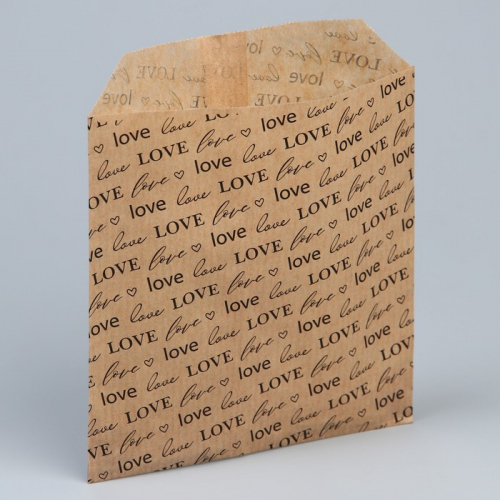 love love
love LOVE love ♡ love love
LOVE love ♡ love love LOVE love ♡
love ♡ love love LOVE love ♡ love love
love LOVE love ♡ love love LOVE
LOVE love ♡ love love LOVE love ♡
love ♡ love love LOVE love ♡ love love
love love LOVE love ♡ love love LOVE
LOVE love ♡ love love LOVE love
love ♡ love love LOVE love ♡ love
love love LOVE love ♡ love love LOVE
LOVE love ♡ love love LOVE love
love ♡ love love LOVE love ♡ love
love love LOVE love ♡ love love LOVE